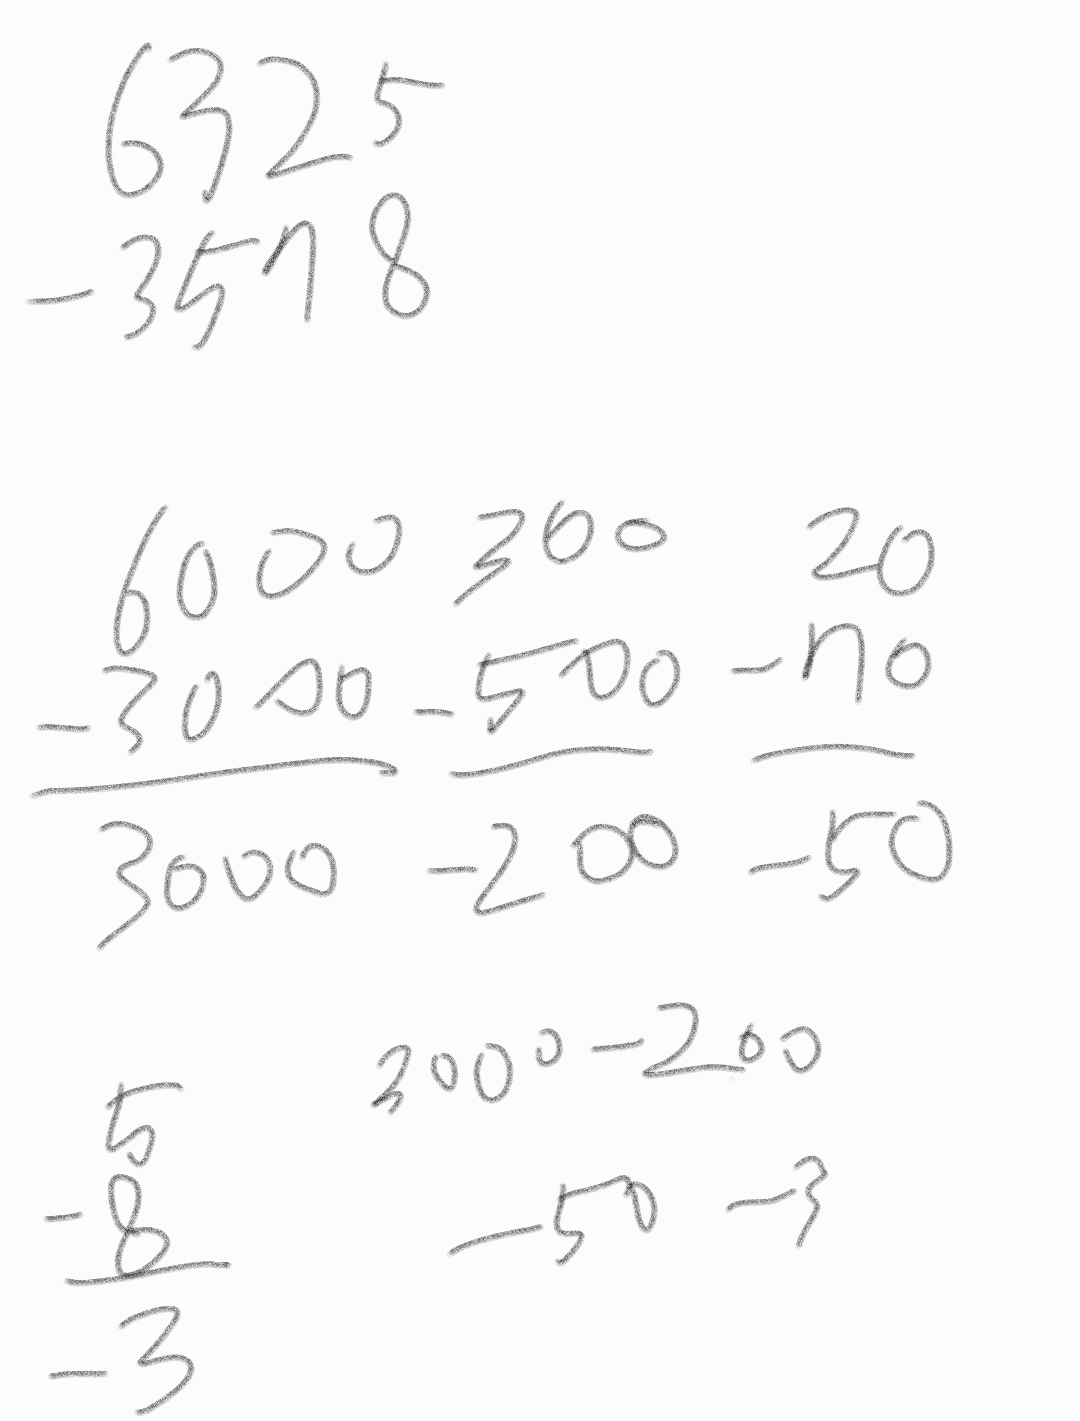 6325
-3578
6000 300 20
-3000 -500 -70
3000 -200 -50
3000-200
5
-50 -3
-8
-3